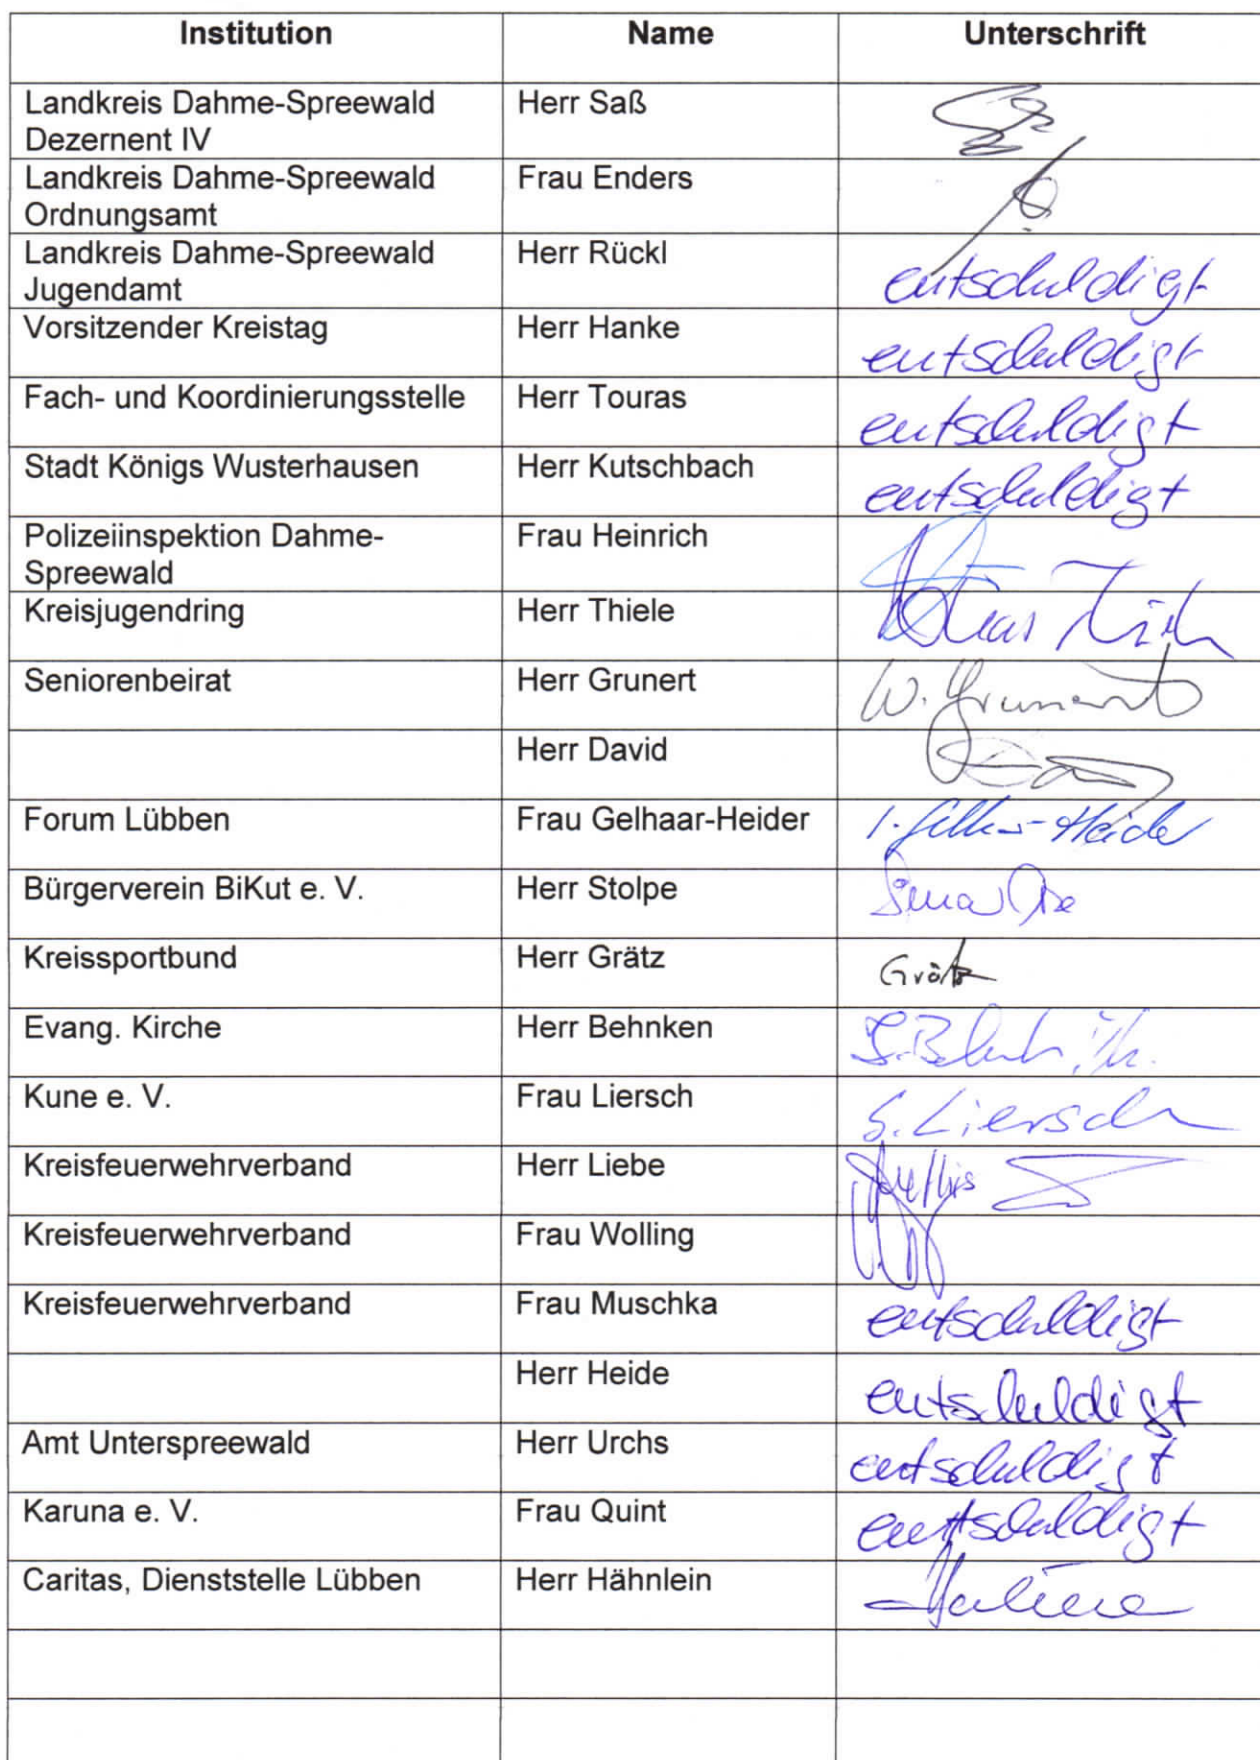 Institution Name Unterschrift
Landkreis Dahme-Spreewald Herr Saß
Dezernent IV
Landkreis Dahme-Spreewald Frau Enders
Ordnungsamt
Landkreis Dahme-Spreewald Herr Rückl entschuldigt
Jugendamt
Vorsitzender Kreistag Herr Hanke entschuldigt
Fach- und Koordinierungsstelle Herr Touras entschuldigt
Stadt Königs Wusterhausen Herr Kutschbach entschuldigt
Polizeiinspektion Dahme- Frau Heinrich
Spreewald
Kreisjugendring Herr Thiele
Seniorenbeirat Herr Grunert W. Grunert
Herr David
Forum Lübben Frau Gelhaar-Heider
Bürgerverein BiKut e. V. Herr Stolpe
Kreissportbund Herr Grätz Grätz
Evang. Kirche Herr Behnken
Kune e. V. Frau Liersch S. Liersch
Kreisfeuerwehrverband Herr Liebe
Kreisfeuerwehrverband Frau Wolling
Kreisfeuerwehrverband Frau Muschka entschuldigt
Herr Heide entschuldigt
Amt Unterspreewald Herr Urchs entschuldigt
Karuna e. V. Frau Quint entschuldigt
Caritas, Dienststelle Lübben Herr Hähnlein